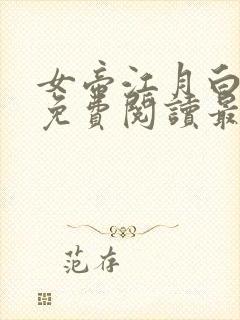 女帝江月白
免費閱讀最
范存